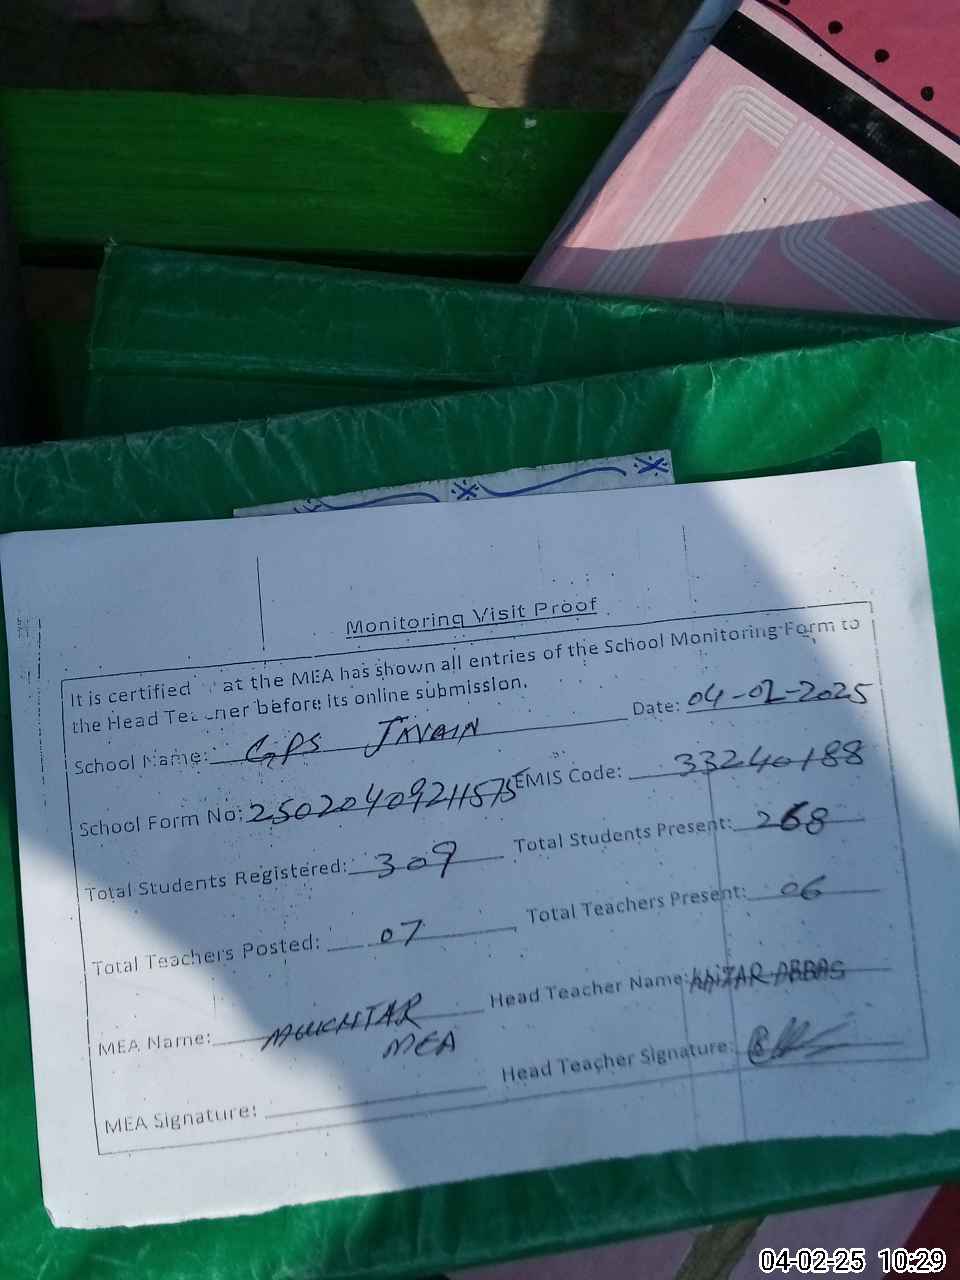 Monitoring Visit Proof
It is certified at the MEA has shown all entries of the School Monitoring Form to
the Head Teacher before its online submission.
School Name: GPS JAVAIN Date: 04-02-2025
School Form No: EMIS Code: 33240188
Total Students Registered: 309 Total Students Present: 268
Total Teachers Posted: 07 Total Teachers Present: 06
MEA Name: MUKHTAR Head Teacher Name: ABBAS
MEA
MEA Signature: Head Teacher Signature:
04-02-25 10:29